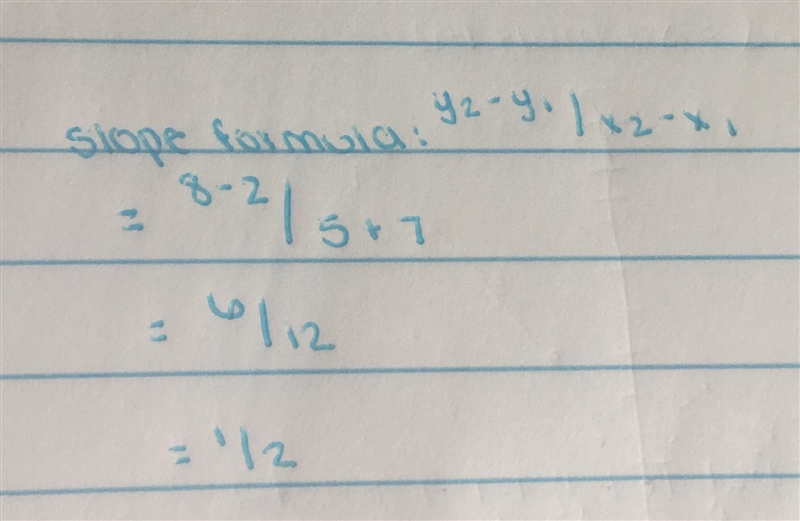 slope formula: y2-y1/x2-x1
= 8-2/5+7
= 6/12
= 1/2